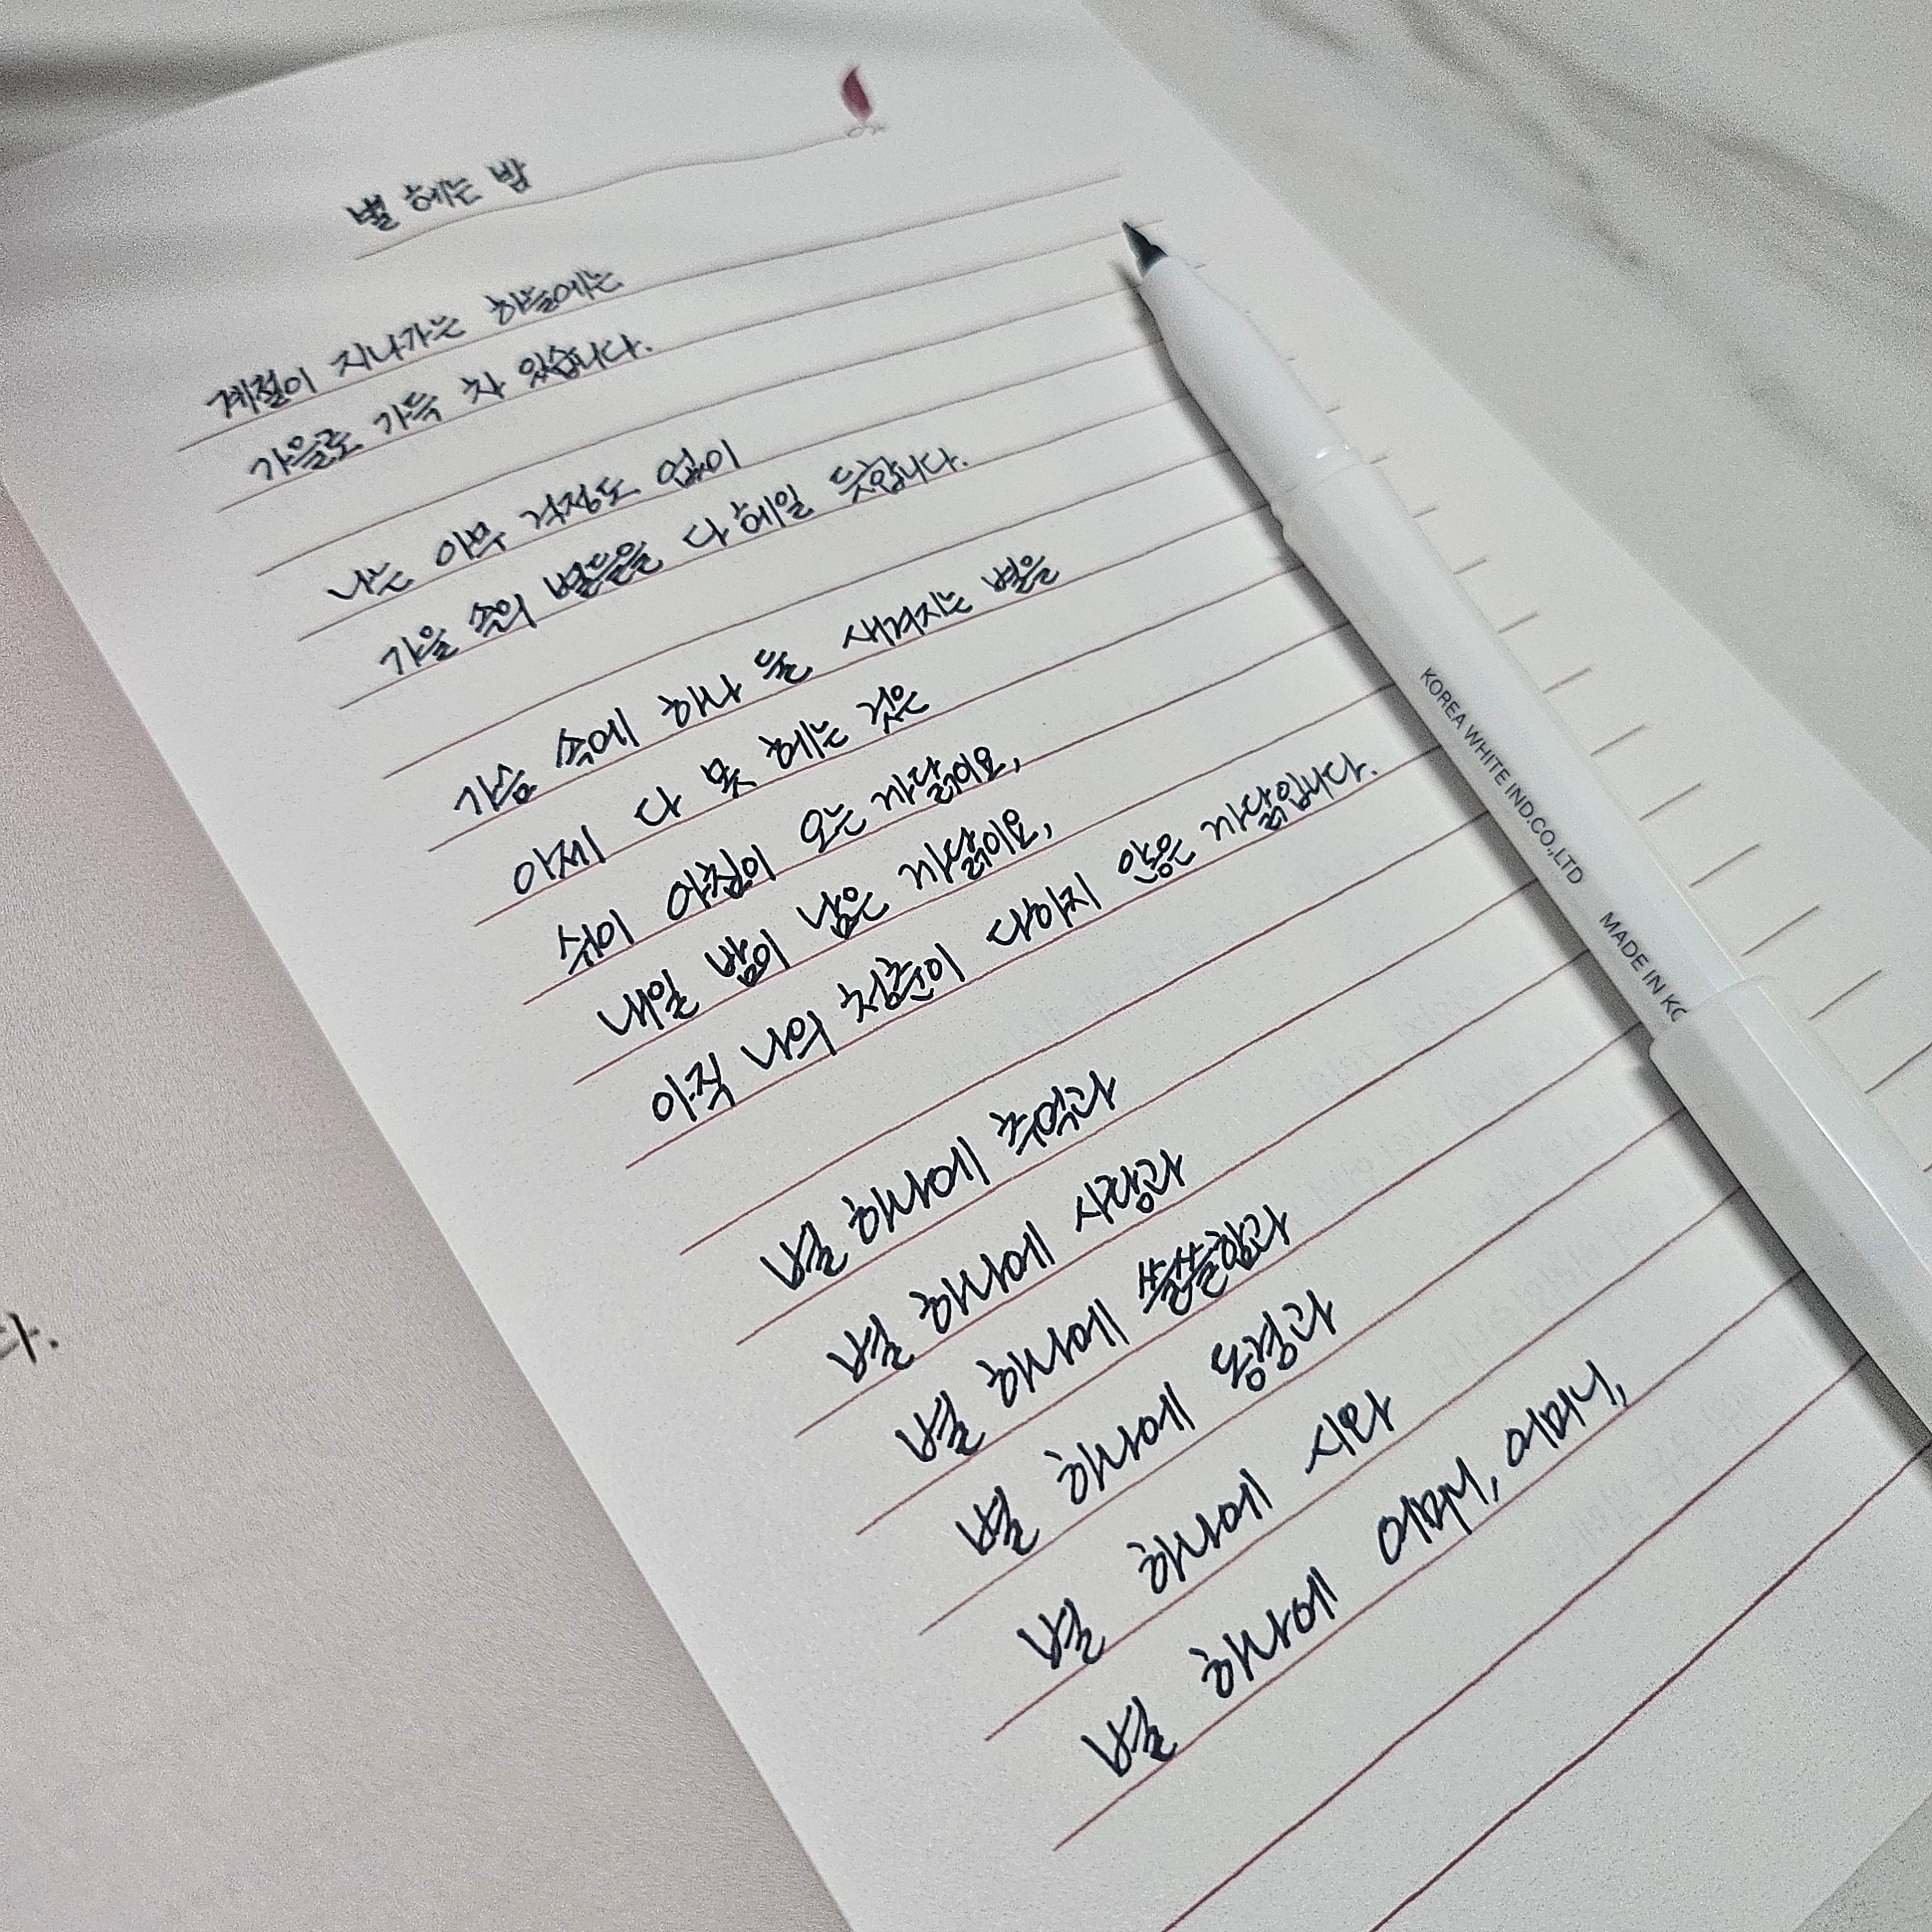 별 헤는 밤
계절이 지나가는 하늘에는
가을로 가득 차 있습니다.
나는 아무 걱정도 없이
가을 속의 별들을 다 헤일 듯합니다.
가슴 속에 하나 둘 새겨지는 별을
이제 다 못 헤는 것은
쉬이 아침이 오는 까닭이요,
내일 밤이 남은 까닭이요,
아직 나의 청춘이 다하지 않은 까닭입니다.
별 하나에 추억과
별 하나에 사랑과
별 하나에 쓸쓸함과
별 하나에 동경과
별 하나에 시와
별 하나에 어머니, 어머니,
KOREA WHITE IND.CO.,LTD MADE IN KO
다.